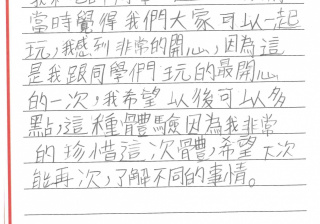 當時覺得我們大家可以一起
玩,我感到非常的開心,因為這
是我跟同學們玩的最開心
的一次,我希望以後可以多
點,這種體驗因為我非常
的珍惜這次體,希望大次
能再次,了解不同的事情。